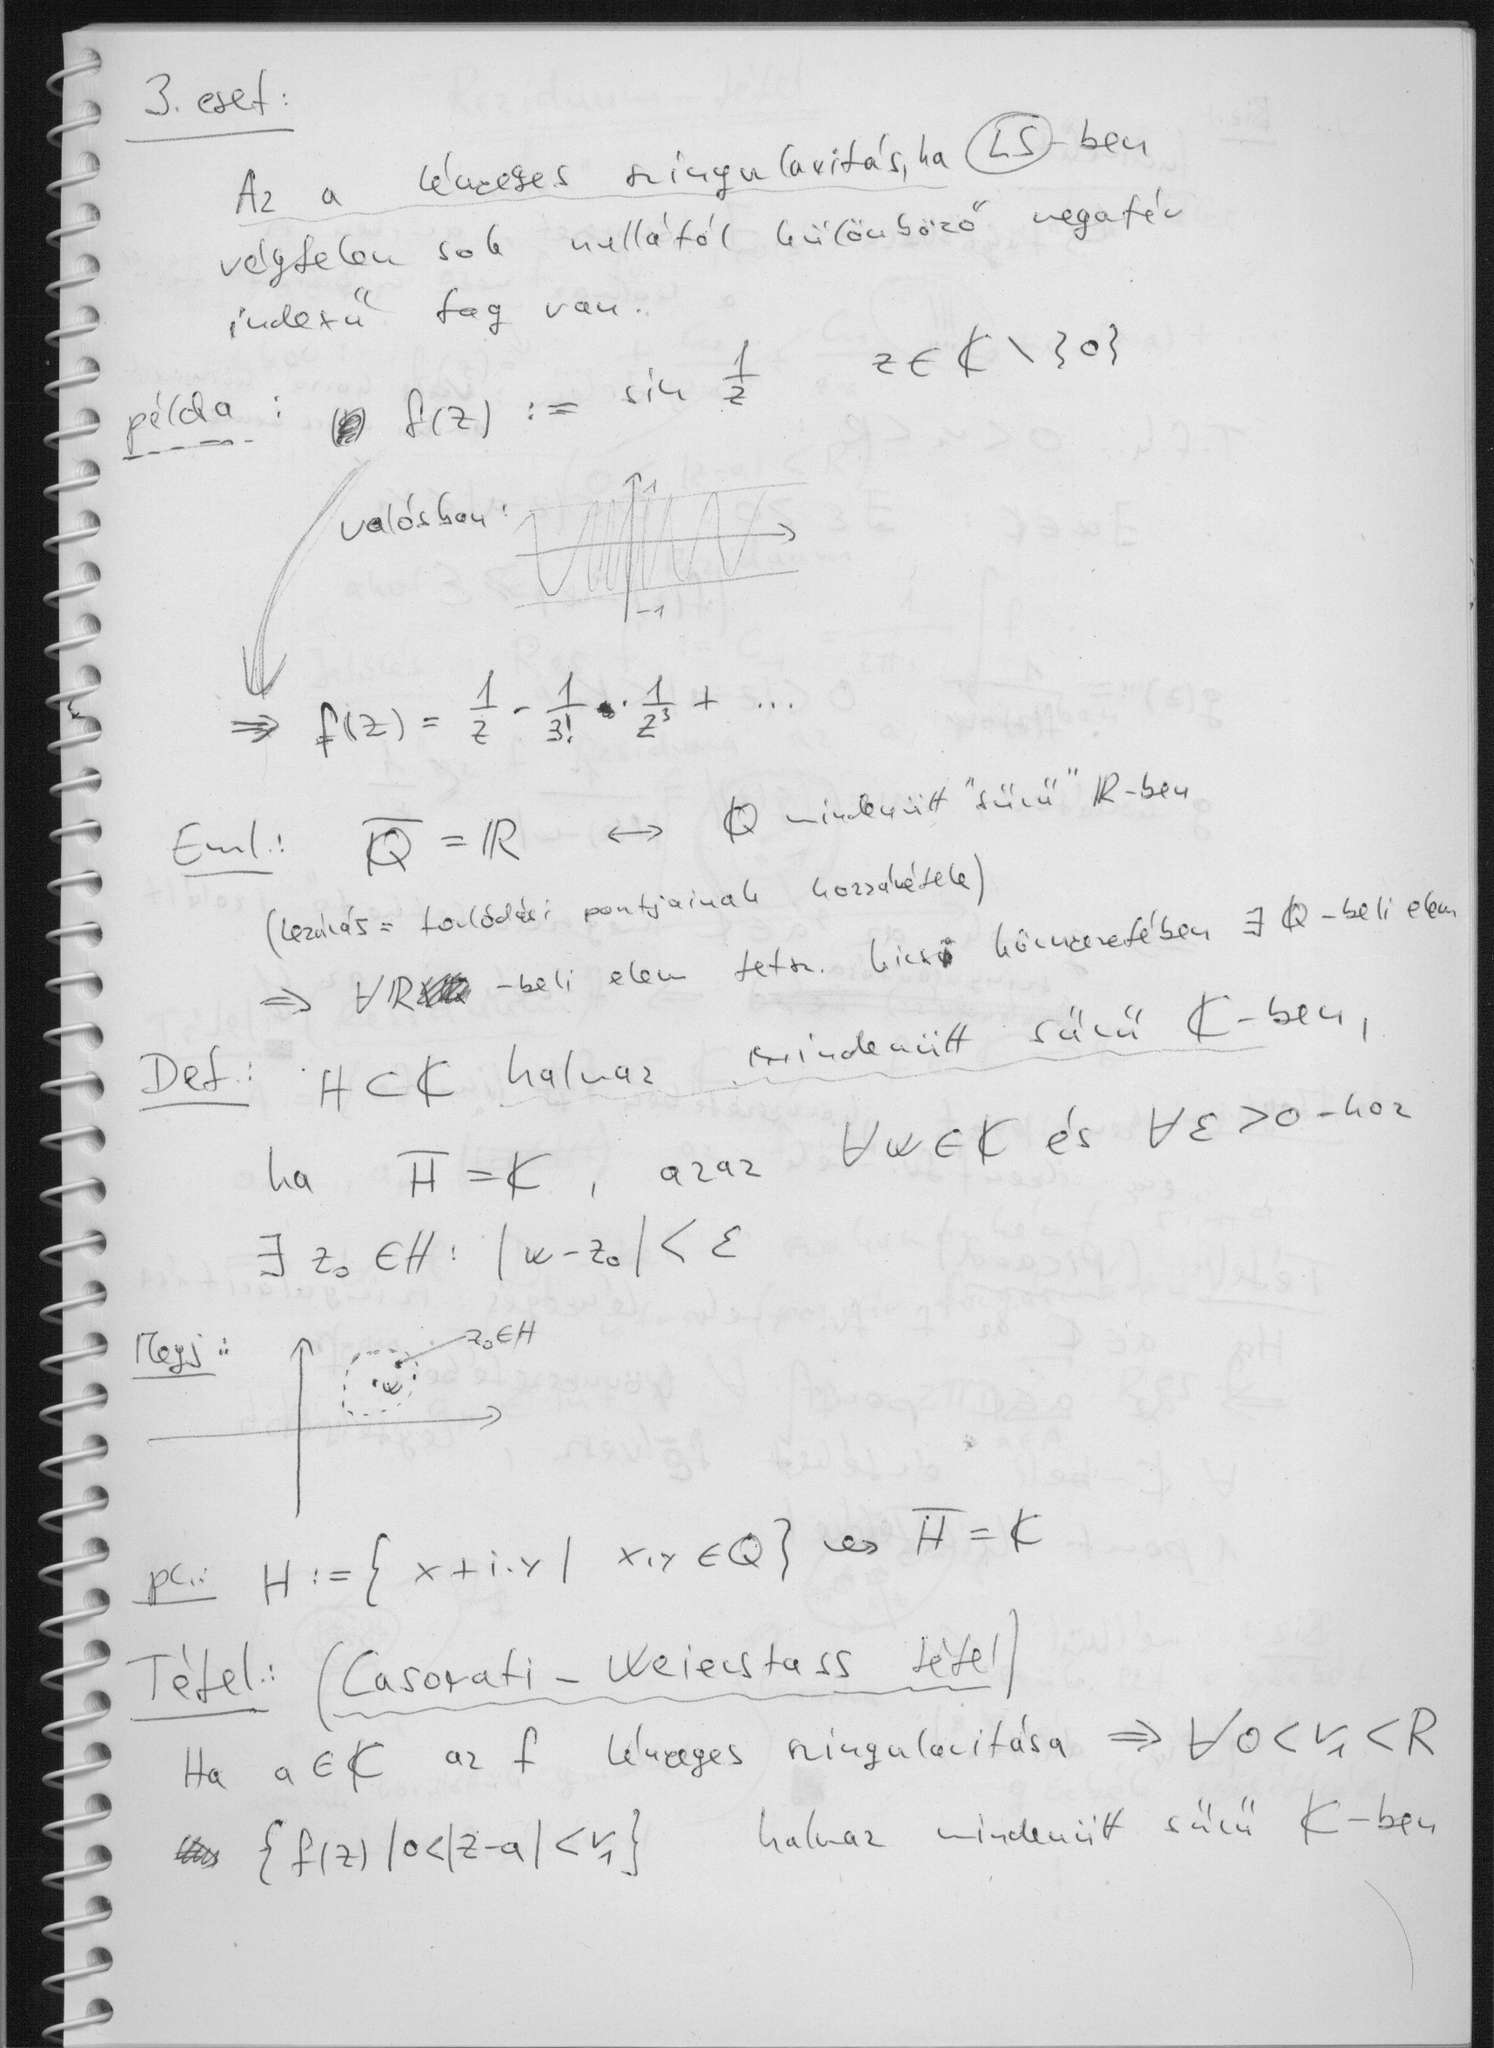 3. eset:
Az a lényeges szingularitás, ha LS-ben
végtelen sok nullától különböző negatív
indexű tag van.
példa: f(z) := sin 1/z z ∈ ℂ \ {0}
valósban:
1
-1
⇒ f(z) = 1/z - 1/3! · 1/z³ + ...
Eml.: ℚ̅ = ℝ ↔ ℚ mindenütt "sűrű" ℝ-ben
(lezárás = torlódási pontjainak hozzávétele)
⇒ ∀ ℝ -beli elem tetsz. kicsi környezetében ∃ ℚ-beli elem
Def.: H ⊂ ℂ halmaz mindenütt sűrű ℂ-ben,
ha H̅ = ℂ, azaz ∀w ∈ ℂ és ∀ε > 0-hoz
∃ z₀ ∈ H: |w - z₀| < ε
Megj.:
z₀ ∈ H
w
pl.: H := { x + i·y | x,y ∈ ℚ } H̅ = ℂ
Tétel.: (Casorati - Weierstass tétel)
Ha a ∈ ℂ az f lényeges szingularitása ⇒ ∀ 0 < r₁ < R
{ f(z) | 0 < |z-a| < r₁ } halmaz mindenütt sűrű ℂ-ben